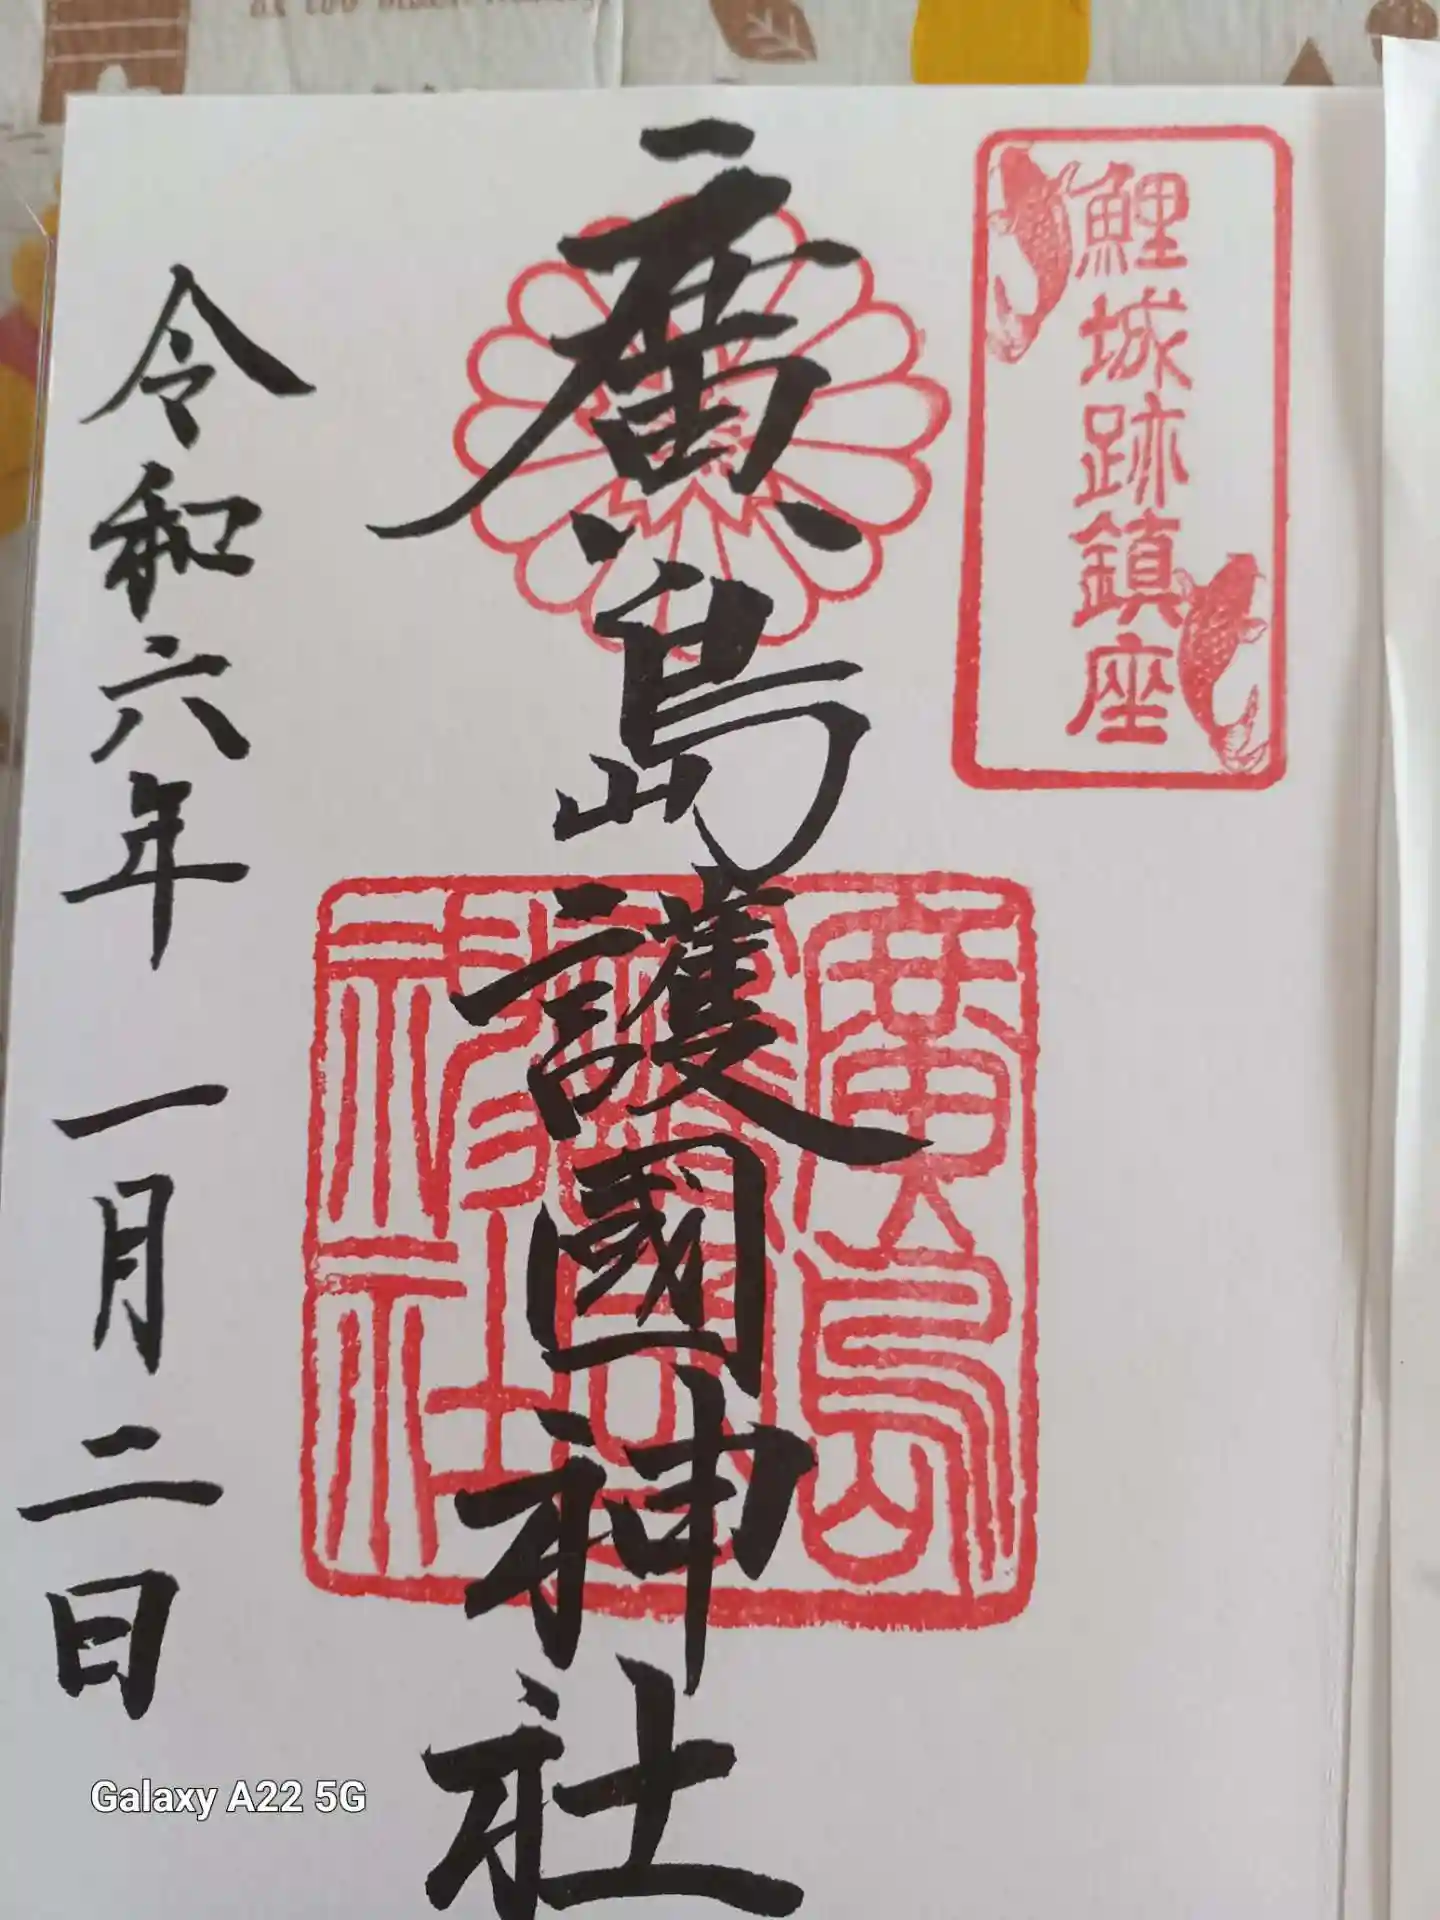 鯉城跡鎮座
廣島護國神社
廣島護國神社
令和六年 一月二日
Galaxy A22 5G